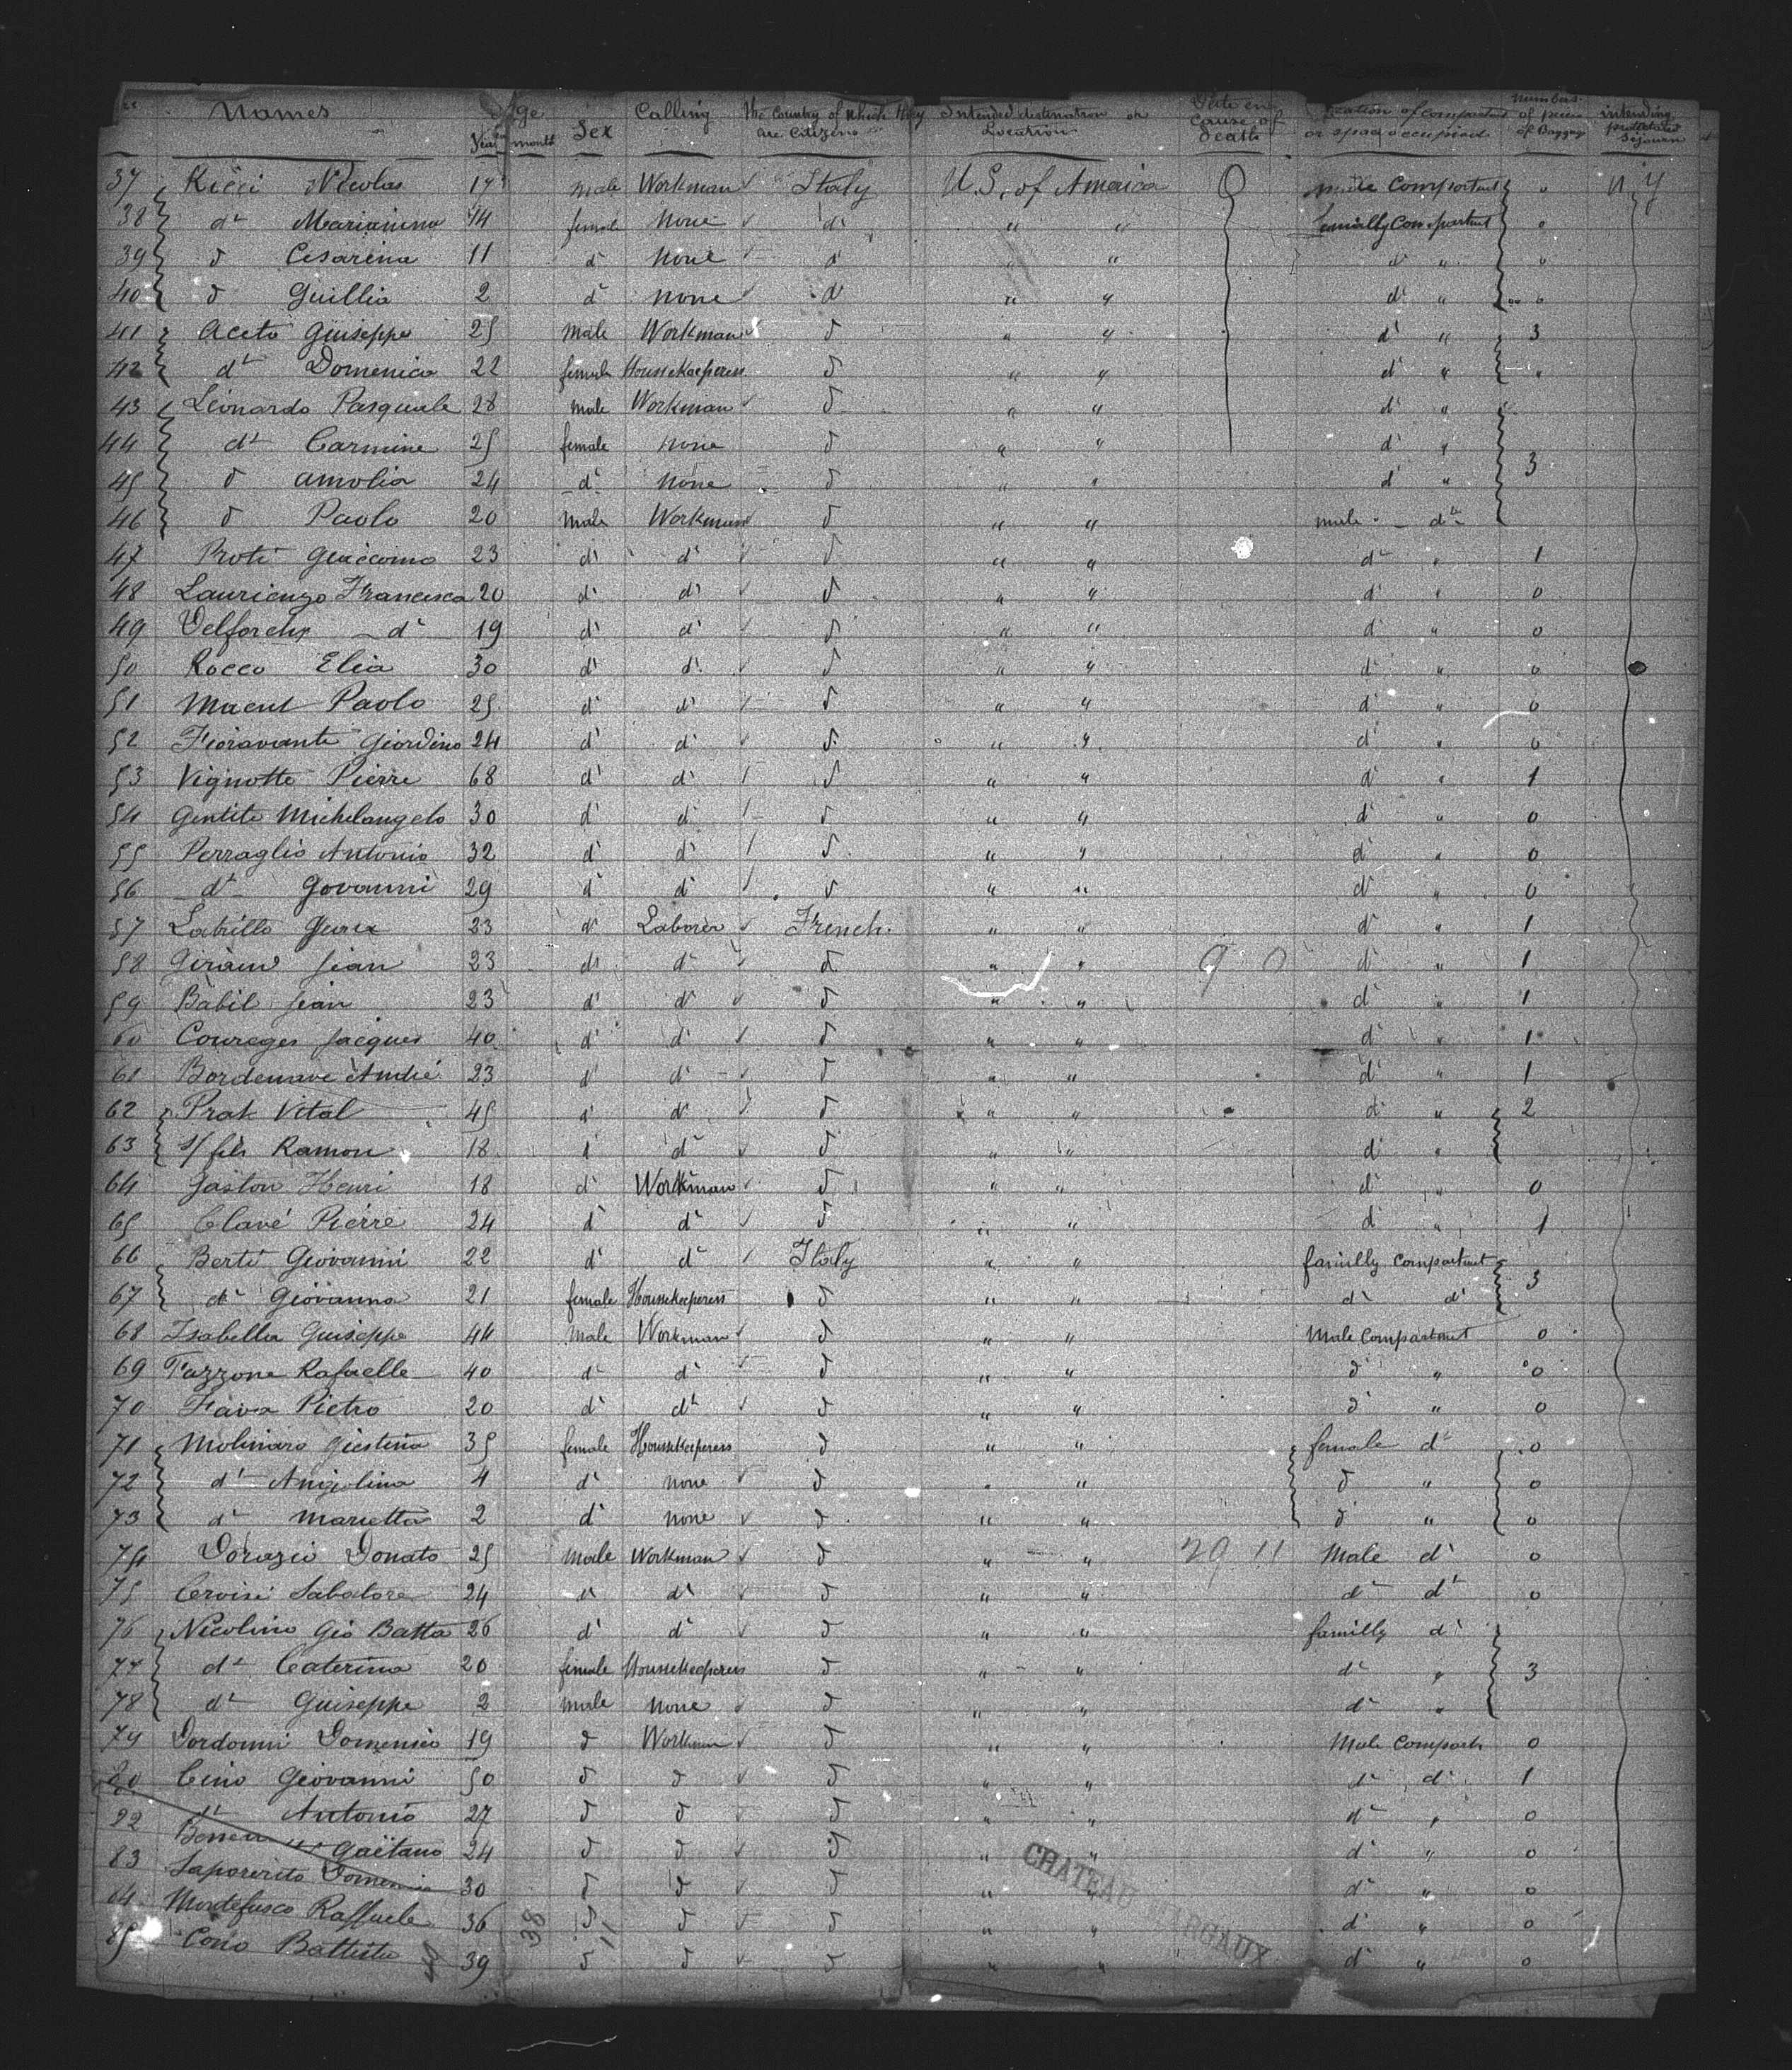 Names Age Years month Sex Calling the Country of which they are citizens Intended destination or Location Date en cause of death Location of compartment or space occupied numbers of pieces of Baggage intending protracted sejourn
37 Ricci Nicolas 17 male Workman Italy U.S. of America male Compartmt " N.Y
38 dº Marianina 14 female none dº " " familly Compartmt "
39 dº Cesarina 11 dº none dº " " dº " "
40 dº Guillia 2 dº none dº " " dº " "
41 Aceto Guiseppe 25 male Workman dº " " dº " 3
42 dº Domenica 22 female Houssekeeperess dº " " dº " "
43 Leonardo Pasquale 28 male Workman dº " " dº "
44 dº Carmine 25 female none dº " " dº "
45 dº Amolia 24 dº none dº " " dº " 3
46 dº Paolo 20 male Workman dº " " male dº
47 Proti Guiccomo 23 dº dº dº " " dº " 1
48 Laurienzo Francesca 20 dº dº dº " " dº " 0
49 dº 19 dº dº dº " " dº " 0
50 Rocco Elia 30 dº dº dº " " dº " 0
51 Paolo 25 dº dº dº " " dº " 0
52 Fioravante Giordino 24 dº dº dº " " dº " 0
53 Vignotte Pierre 68 dº dº dº " " dº " 1
54 Gentite Michelangelo 30 dº dº dº " " dº " 0
55 Perraglio Antonio 32 dº dº dº " " dº " 0
56 dº Govanni 29 dº dº dº " " dº " 0
57 Latrille 23 dº Laborer French " " dº " 1
58 Giraud Jean 23 dº dº dº " " 9 0 dº " 1
59 Babil Jean 23 dº dº dº " " dº " 1
60 Coureges Jacques 40 dº dº dº " " dº " 1
61 Bordenave André 23 dº dº dº " " dº " 1
62 Prat Vital 45 dº dº dº " " dº " 2
63 s/ fils Ramon 18 dº dº dº " " dº "
64 Gaston Henri 18 dº Workman dº " " dº " 0
65 Clavé Pierre 24 dº dº dº " " dº " 1
66 Berti Giovanni 22 dº dº Italy " " familly Compartmt
67 dº Giovanna 21 female Houssekeeperess dº " " dº dº 3
68 Isabella Guiseppe 44 male Workman dº " " Male Compartmt 0
69 Tazzone Rafaelle 40 dº dº dº " " dº " 0
70 Fava Pietro 20 dº dº dº " " dº " 0
71 Molinaro Giestina 35 female Houssekeeperess dº " " female dº 0
72 dº Anjolina 4 dº none dº " " dº " 0
73 dº Marietta 2 dº none dº " " dº " 0
74 Dorazio Donato 25 Male Workman dº " " 29 11 Male dº 0
75 Cervisi Sabatore 24 dº dº dº " " dº dº 0
76 Nicolino Gio Batta 26 dº dº dº " " familly dº
77 dº Caterina 20 female Houssekeeperess dº " " dº " 3
78 dº Guiseppe 2 male none dº " " dº "
79 Dordonni Domenico 19 dº Workman dº " " Male Compart 0
80 Cino Giovanni 50 dº dº dº " " dº dº 1
dº Antonio 27 dº dº dº " " dº " 0
82 Gaëtano 24 dº dº dº " " dº " 0
83 Saporerito Domenico 30 dº dº dº " " dº " 0
84 Montefusco Raffaele 36 dº dº dº " " dº " 0
85 Cono Battista 39 dº dº dº " " dº " 0
38 11
CHATEAU MARGAUX